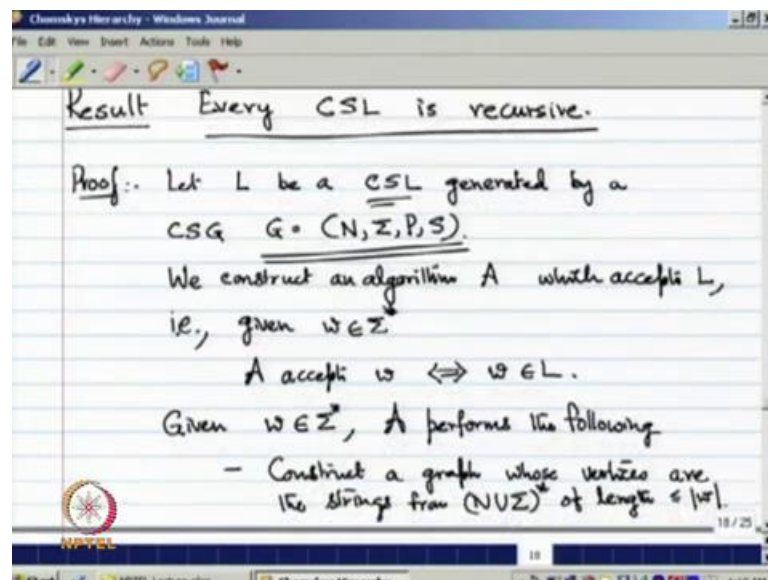 Chomskys Hierarchy - Windows Journal
File Edit View Insert Actions Tools Help
Result Every CSL is recursive.
Proof:- Let L be a CSL generated by a
CSG G = (N, Σ, P, S).
We construct an algorithm A which accepts L,
i.e., given w ∈ Σ*
A accepts w ⇔ w ∈ L.
Given w ∈ Σ*, A performs the following
- Construct a graph whose vertices are
the strings from (N∪Σ)* of length ≤ |w|.
NPTEL
18/25
18
Chomskys Hierarchy